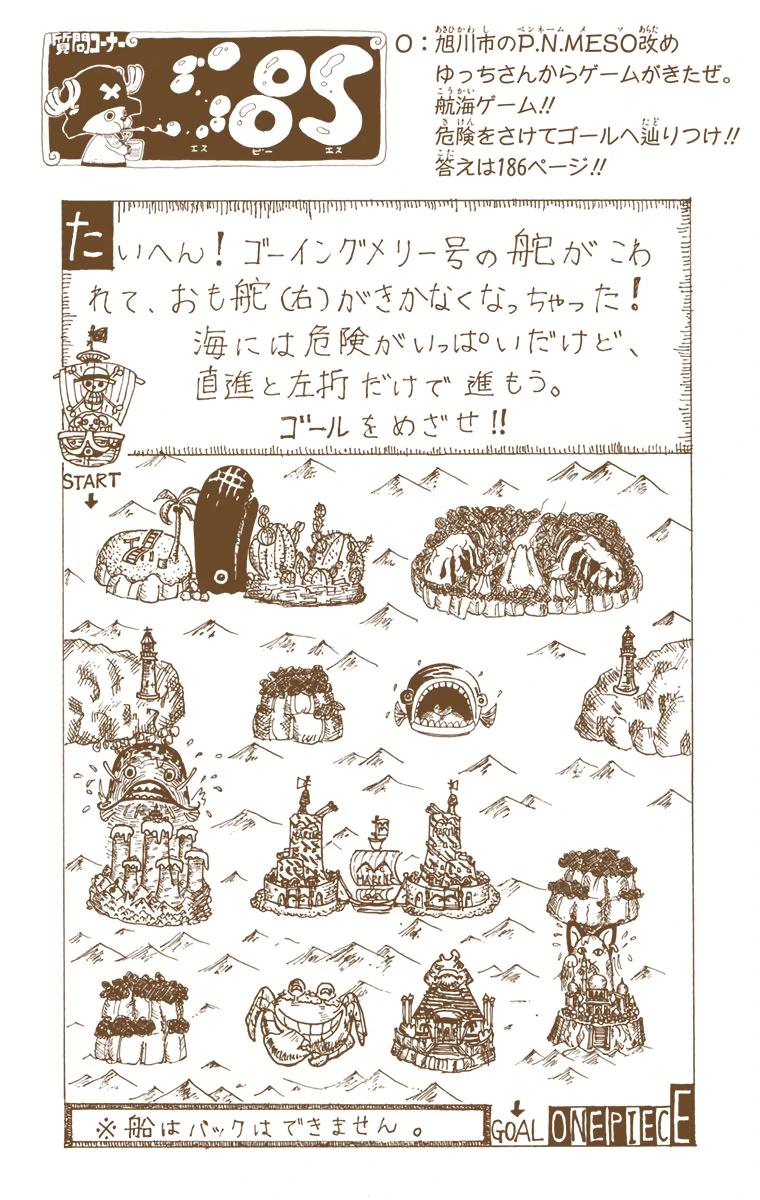 質問コーナー
SBS
エス ビー エス
O:旭川市のP.N.MESO改め
ゆっちさんからゲームがきたぜ。
航海ゲーム!!
危険をさけてゴールへ辿りつけ!!
答えは186ページ!!
たいへん!ゴーイングメリー号の舵がこわ
れて、おも舵(右)がきかなくなっちゃった!
海には危険がいっぱいだけど、
直進と左折だけで進もう。
ゴールをめざせ!!
START
MARINE
MARINE
MARINE
※船はバックはできません。
GOAL
ONEPIECE